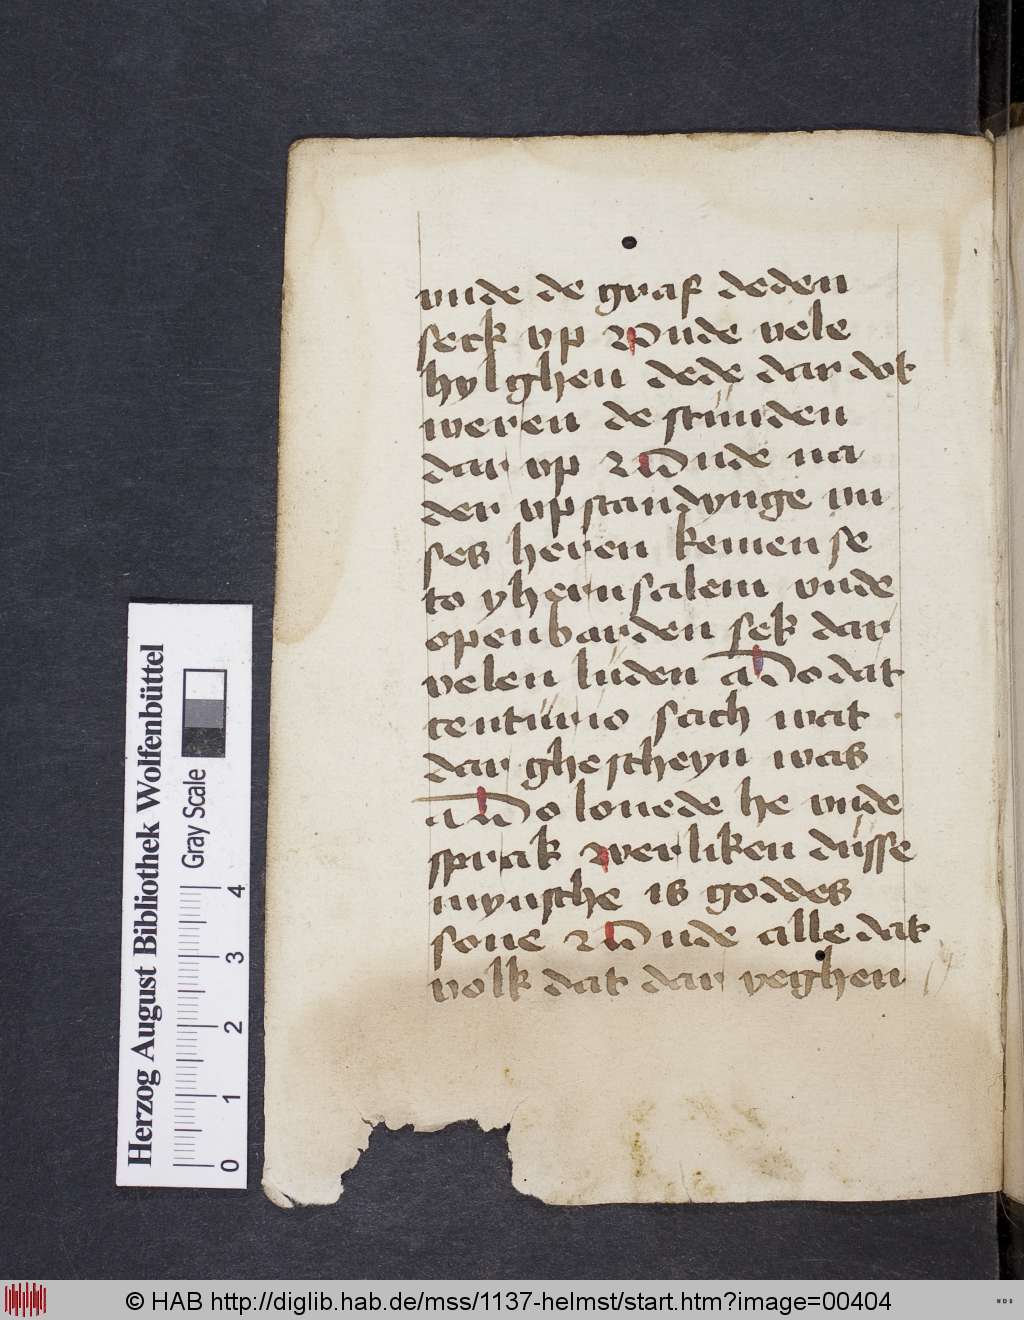 vnde de graf deden
seck vp Vnde vele
hylghen dede dar dot
weren de stunden
dar vp Vnde na
der vpstandynge vn
ses heren kemen se
to yherusalem vnde
openbarden sek dar
velen luden Do dat
centurio sach wat
dar ghescheyn was
Do louede he vnde
sprak werliken dusse
mynsche is goddes
sone Vnde alle dat
volk dat dar yeghen
Herzog August Bibliothek Wolfenbüttel
Gray Scale
0 1 2 3 4
© HAB http://diglib.hab.de/mss/1137-helmst/start.htm?image=00404